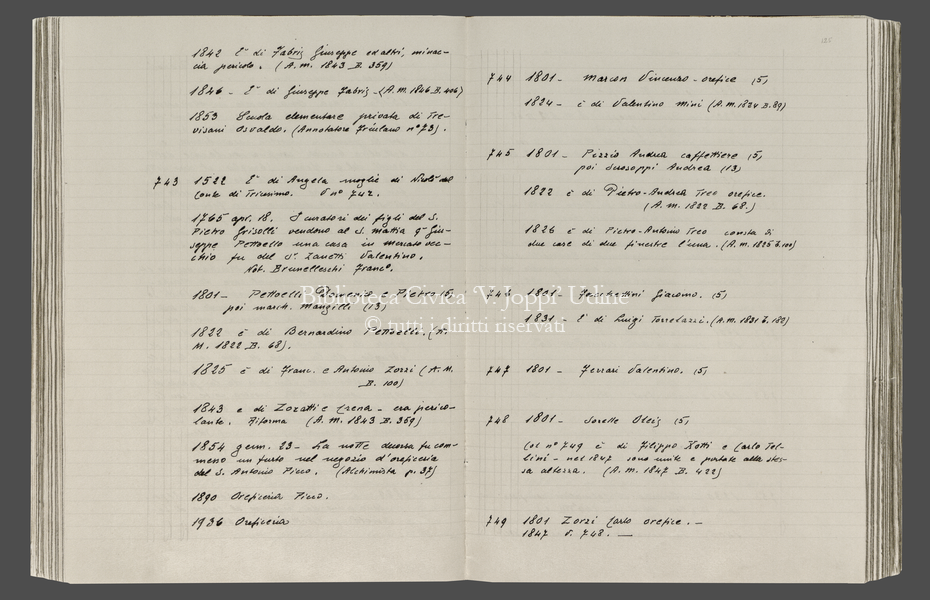 1842 E' di Fabris Giuseppe ed altri, minac-
cia pericolo. (A.M. 1843 B. 359)
1846 - E' di Giuseppe Fabris - (A.M. 1846 B. 406)
1853 Scuola elementare privata di Tre-
visani Osvaldo. (Annotatore Friulano n° 73).
743 1522 E' di Angela moglie di Nicolò del
Conte di Tricesimo. V n° 742.
1765 apr. 18. I curatori dei figli del S.
Pietro Grisolli vendono al S. Mattia q.m Giu-
seppe Pettoello una casa in mercatovec-
chio fu del S.r Zanetti Valentino.
Not. Brunelleschi Franc°.
1801 - Pettoelli Domenico e Pietro (5,
poi march. Mangilli (13)
1822 è di Bernardino Pettoelli. (A.
M. 1822 B. 68).
1825 è di Franc. e Antonio Zorzi (A.M.
B. 100)
1843 è di Zoratti e - era perico-
lante. Riforma (A.M. 1843 B. 359)
1854 genn. 23 - La notte decorsa fu com-
messo un furto nel negozio d'oreficeria
del S. Antonio Picco. (Alchimista p. 37)
1890 Oreficeria Picco.
1936 Oreficeria
744 1801 - Marcon Vincenzo - orefice (5,
1824 - è di Valentino Mini (A.M. 1824 B. 89)
745 1801 - Pizzio Andrea caffettiere (5,
poi Serosoppi Andrea (13)
1822 è di Pietro-Andrea Treo orefice.
(A.M. 1822 B. 68.)
1826 è di Pietro-Antonio Treo consta di
due case di due finestre l'una. (A.M. 1825 B. 100)
746 1801 - Giacomo. (5)
1831 - E' di Luigi Torrelazzi. (A.M. 1831 B. 180)
747 1801 - Ferrari Valentino. (5)
748 1801 - Sorelle Oleis (5,
(col n° 749 è di Filippo Kotti e Carlo Tel-
lini - nel 1847 sono unite e portate alla stes-
sa altezza. (A.M. 1847 B. 422)
749 1801 Zorzi Carlo orefice. -
1847 V. 748. -
Biblioteca Civica V. Joppi Udine
© tutti i diritti riservati